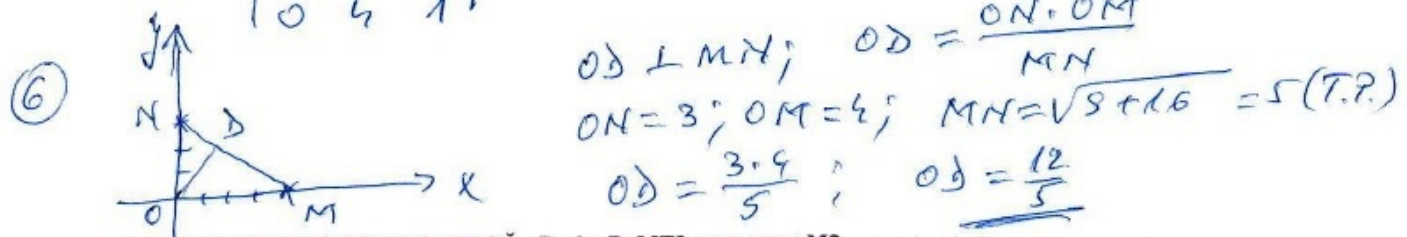 10 4 1
⑥ y N D O M x
OD ⊥ MN; OD = ON·OM / MN
ON = 3; OM = 4; MN = √9+16 = 5 (T.P.)
OD = 3·4 / 5 ; OD = 12 / 5